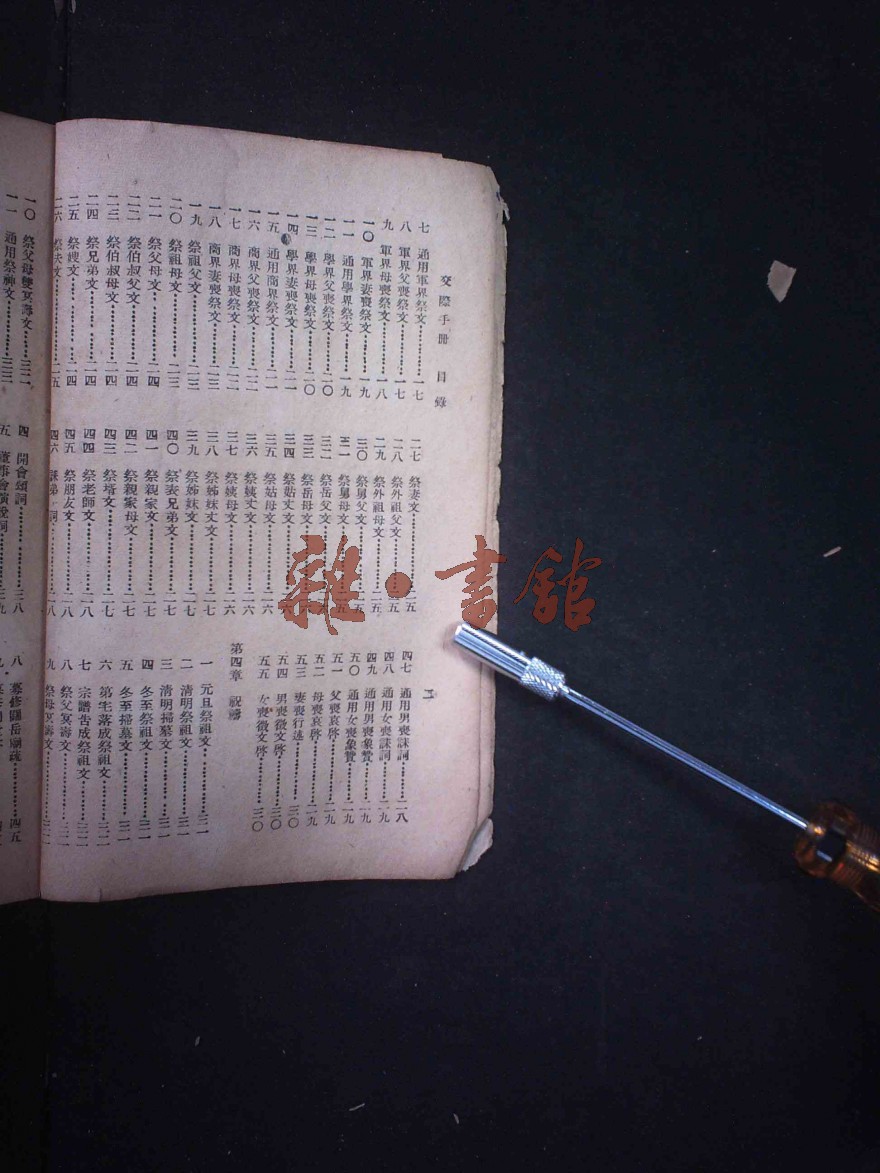 交際手册 目錄 二
七 通用軍界祭文…………一七
八 軍界父喪祭文…………一七
九 軍界母喪祭文…………一八
一〇 軍界妻喪祭文…………一九
一一 通用學界祭文…………一九
一二 學界父喪祭文…………二〇
一三 學界母喪祭文…………二〇
一四 學界妻喪祭文…………二一
一五 通用商界祭文…………二一
一六 商界父喪祭文…………二二
一七 商界母喪祭文…………二二
一八 商界妻喪祭文…………二三
一九 祭祖父文…………二三
二〇 祭祖母文…………二三
二一 祭父母文…………二四
二二 祭伯叔父文…………二四
二三 祭伯叔母文…………二四
二四 祭兄弟文…………二四
二五 祭嫂文…………二四
二六 祭夫文…………二五
二七 祭妻文…………二五
二八 祭外祖父文…………二五
二九 祭外祖母文…………二五
三〇 祭舅父文…………二五
三一 祭舅母文…………二五
三二 祭岳父文…………二六
三三 祭岳母文…………二六
三四 祭姑丈文…………二六
三五 祭姑母文…………二六
三六 祭姨丈文…………二六
三七 祭姨母文…………二六
三八 祭姊妹丈文…………二七
三九 祭姊妹文…………二七
四〇 祭表兄弟文…………二七
四一 祭親家文…………二七
四二 祭親家母文…………二七
四三 祭壻文…………二八
四四 祭老師文…………二八
四五 祭朋友文…………二八
四六 詞…………二八
四七 通用男喪誄詞…………二八
四八 通用女喪誄詞…………二九
四九 通用男喪象贊…………二九
五〇 通用女喪象贊…………二九
五一 父喪哀啓…………二九
五二 母喪哀啓…………二九
五三 妻喪行述…………三〇
五四 男喪徵文啓…………三〇
五五 女喪徵文啓…………三〇
第四章 祝禱
一 元旦祭祖文…………三一
二 清明祭祖文…………三一
三 清明掃墓文…………三一
四 冬至祭祖文…………三一
五 冬至掃墓文…………三一
六 第宅落成祭祖文…………三二
七 宗譜告成祭祖文…………三二
八 祭父冥壽文…………三二
九 祭母冥壽文…………三二
一〇 祭父母雙冥壽文…………三二
一一 通用祭神文…………三三
四 開會頌詞…………三八
五 董事會演說詞…………三九
八 募修關岳廟疏…………四五
雜·書館